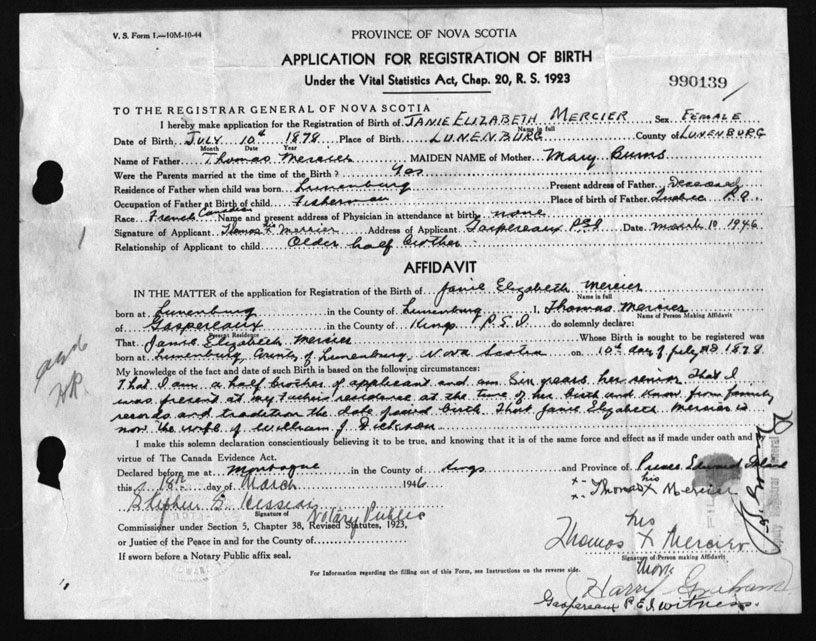 V. S. Form 1.—10M-10-44
PROVINCE OF NOVA SCOTIA
APPLICATION FOR REGISTRATION OF BIRTH
Under the Vital Statistics Act, Chap. 20, R. S. 1923
990139
TO THE REGISTRAR GENERAL OF NOVA SCOTIA
I hereby make application for the Registration of Birth of JANIE ELIZABETH MERCIER Sex FEMALE
Name in full
Date of Birth JULY 10th 1878 Place of Birth LUNENBURG County of LUNENBURG
Month Date Year
Name of Father Thomas Mercier MAIDEN NAME of Mother Mary Burns
Were the Parents married at the time of the Birth? Yes
Residence of Father when child was born Lunenburg Present address of Father Deceased
Occupation of Father at Birth of child Fisherman Place of birth of Father Quebec P.Q.
Race French Canadian Name and present address of Physician in attendance at birth none
Signature of Applicant Thomas his X Mercier Address of Applicant Gaspereaux P.E.I Date March 10 1946
Relationship of Applicant to child Older half brother
AFFIDAVIT
IN THE MATTER of the application for Registration of the Birth of Janie Elizabeth Mercier
Name in full
born at Lunenburg in the County of Lunenburg I, Thomas Mercier
Name of Person Making Affidavit
of Gaspereaux in the County of Kings P.E.I do solemnly declare:
Present Residence
That Janie Elizabeth Mercier Whose Birth is sought to be registered was
born at Lunenburg County of Lunenburg, Nova Scotia on 10th day of July AD 1878
My knowledge of the fact and date of such Birth is based on the following circumstances:
That I am a half brother of applicant and am Six years her senior That I
was present at my father's residence at the time of her birth and know from family
records and tradition the date of said birth. That Janie Elizabeth Mercier is
now the wife of William J. Dickson
I make this solemn declaration conscientiously believing it to be true, and knowing that it is of the same force and effect as if made under oath and by
virtue of The Canada Evidence Act.
Declared before me at Montague in the County of Kings and Province of Prince Edward Island
this 18th day of March 1946
his
Thomas X Mercier
Stephen
Signature of
Notary Public
Commissioner under Section 5, Chapter 38, Revised Statutes, 1923,
or Justice of the Peace in and for the County of
If sworn before a Notary Public affix seal.
his
Thomas X Mercier
Signature of Person making Affidavit
Mark
For Information regarding the filling out of this Form, see Instructions on the reverse side.
(Harry Graham)
Gaspereaux P E I witness.
Deputy Registrar General